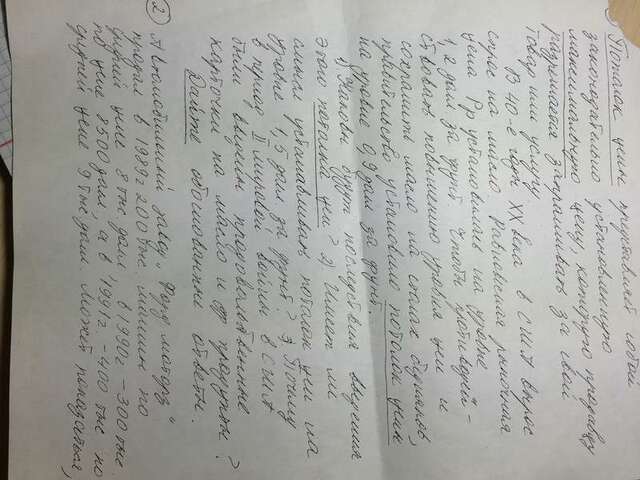 Потолок цены представляет собой
законодательно установленную
максимальную цену, которую продавцу
разрешается запрашивать за свой
товар или услугу.
В 40-е годы XX века в США вырос
спрос на масло. Равновесная рыночная
цена Pp установилась на уровне
1,2 дол за фунт. Чтобы противодей-
ствовать повышению уровня цен и
сохранить масло на столах бедняков,
правительство установило потолок цены
на уровне 0,9 дол за фунт.
1) Каковы будут последствия введения
этого потолка цен? 2) Имеет ли
смысл устанавливать потолок цен на
уровне 1,5 дол за фунт? 3) Почему
в период II мировой войны в США
были введены продовольственные
карточки на масло и др продукты?
Дайте обоснованные ответы.
2 Автомобильный завод "Форд моторз"
продал в 1989г 200 тыс. машин по
средней цене 8 тыс дол, в 1990г - 300 тыс
по цене 8500 долл, а в 1991г - 400 тыс по
средней цене 9 тыс дол. Может показаться,